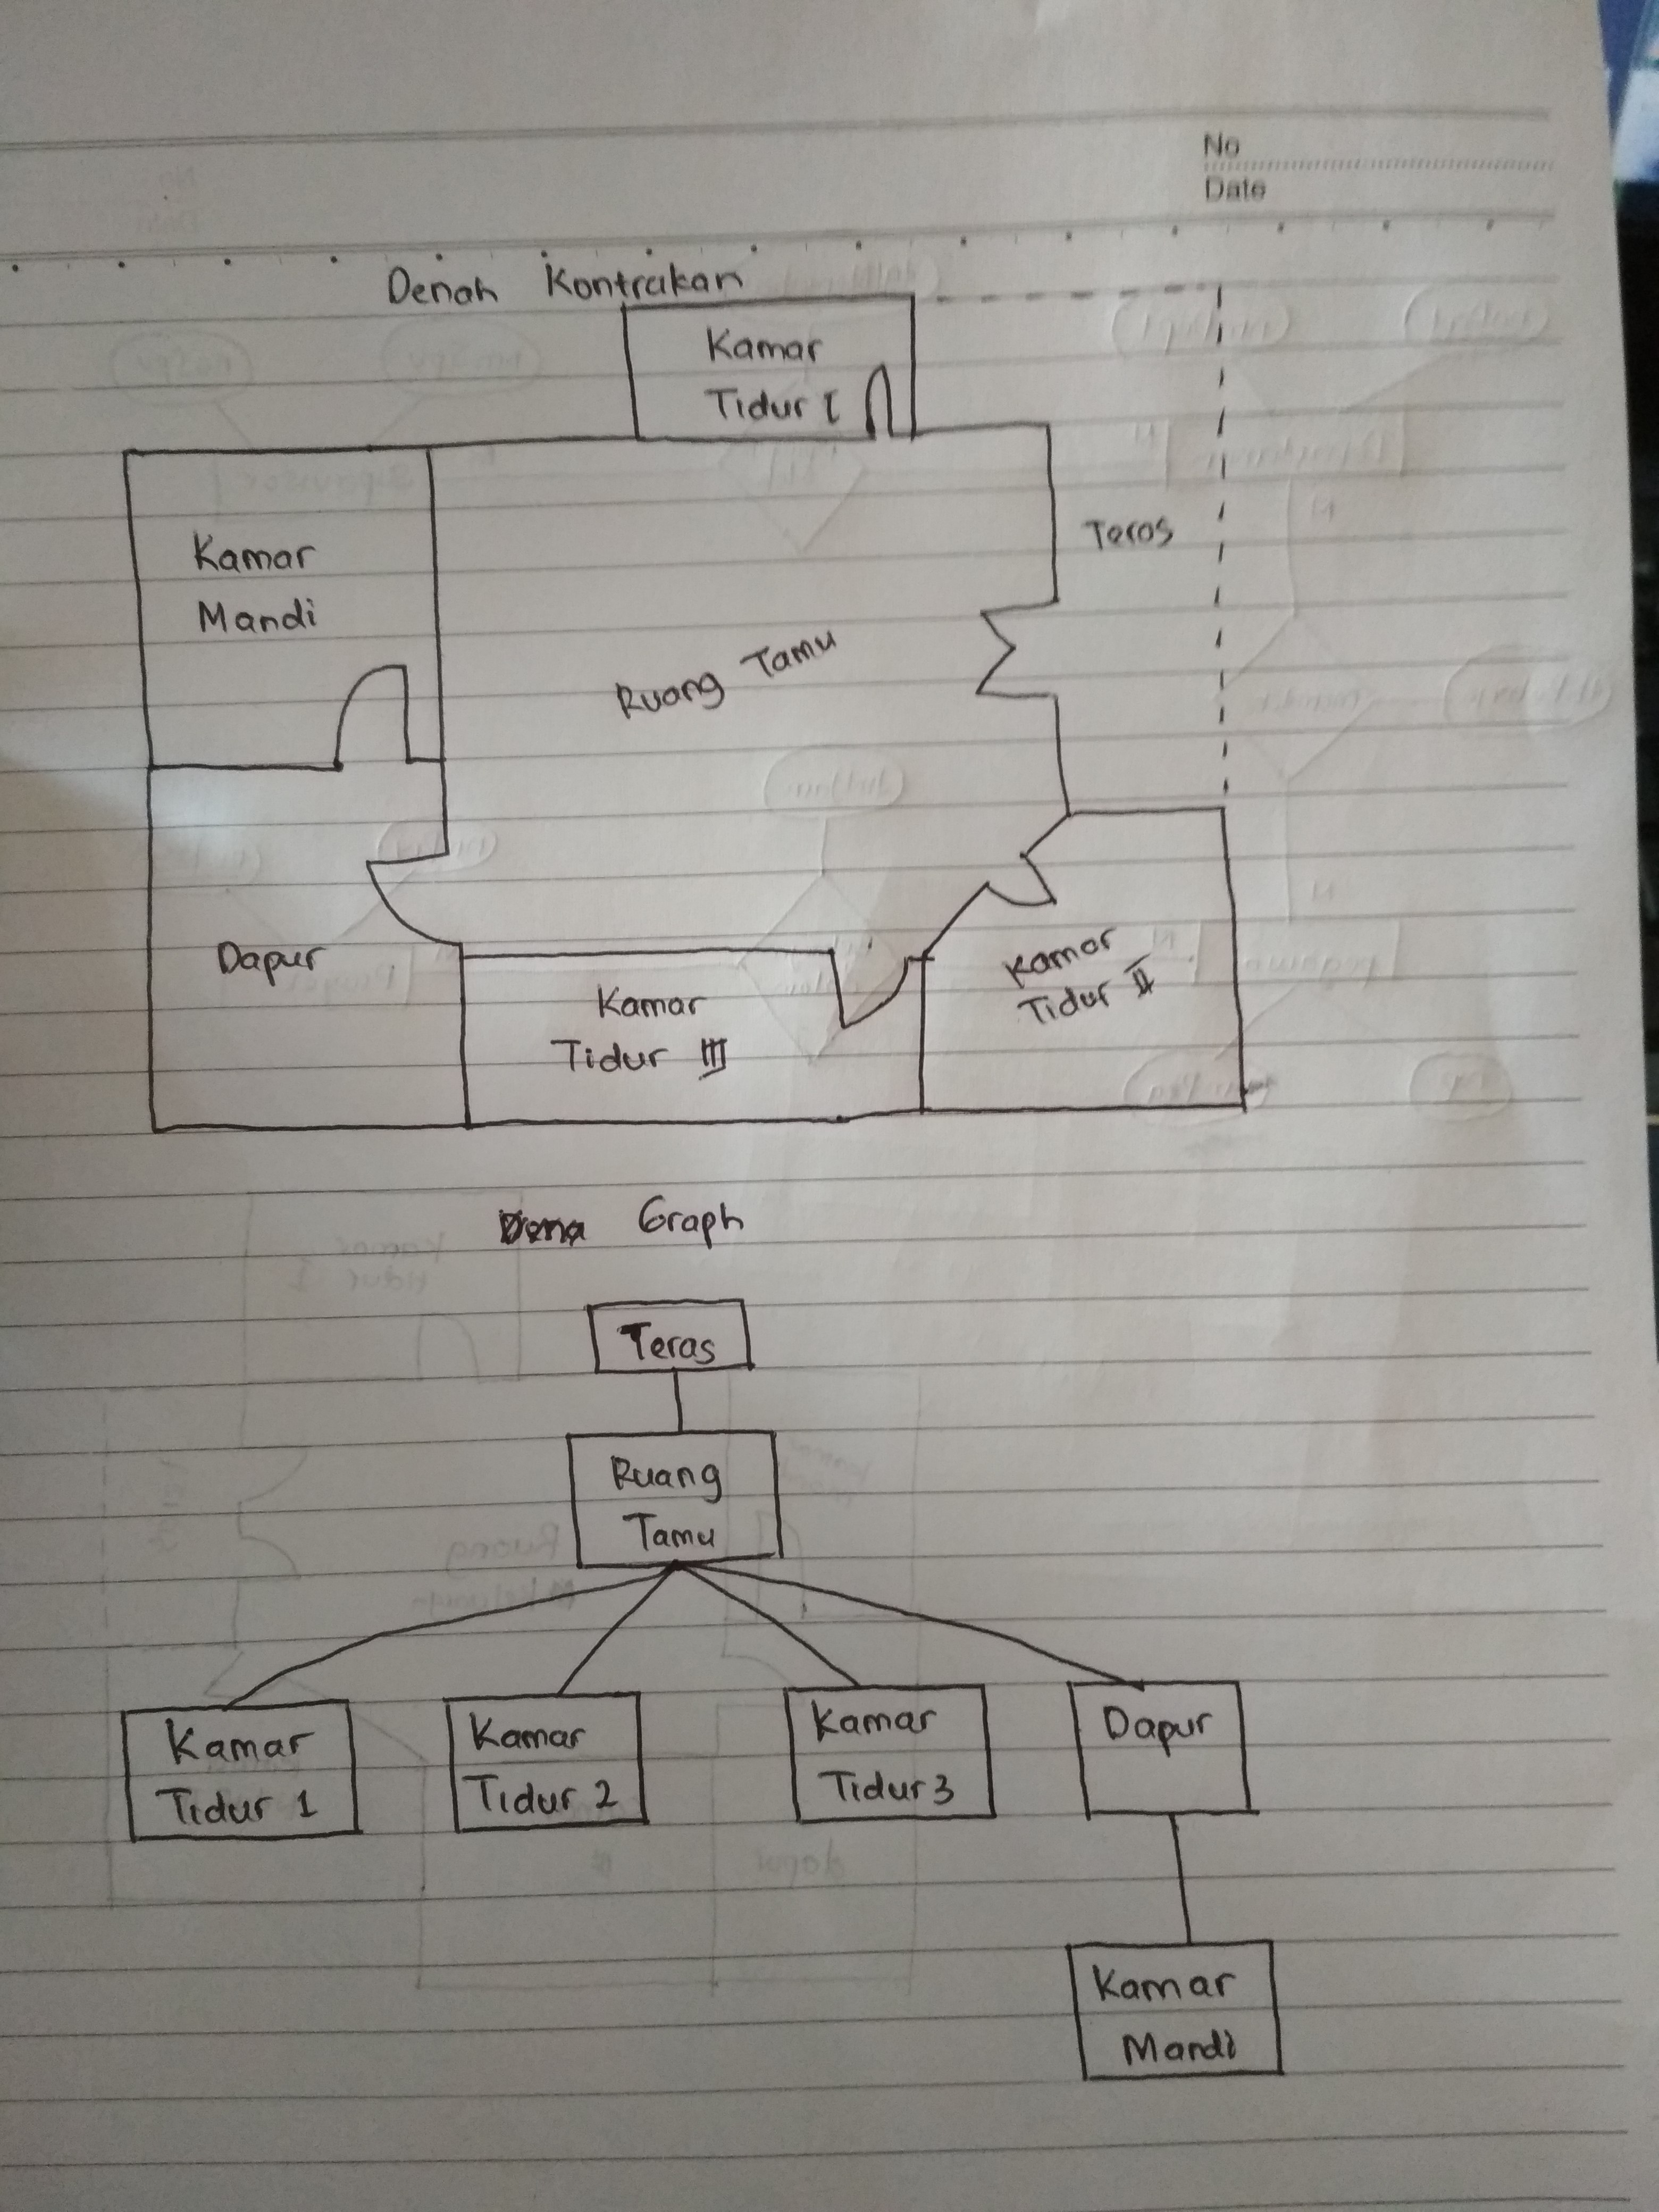 No
Date
Denah Kontrakan
Kamar
Tidur I
Teras
Kamar
Mandi
Ruang Tamu
Dapur
Kamar
Tidur III
Kamar
Tidur II
Graph
Teras
Ruang
Tamu
Kamar
Tidur 1
Kamar
Tidur 2
Kamar
Tidur 3
Dapur
Kamar
Mandi